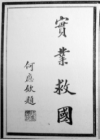 實業救國
何應欽題